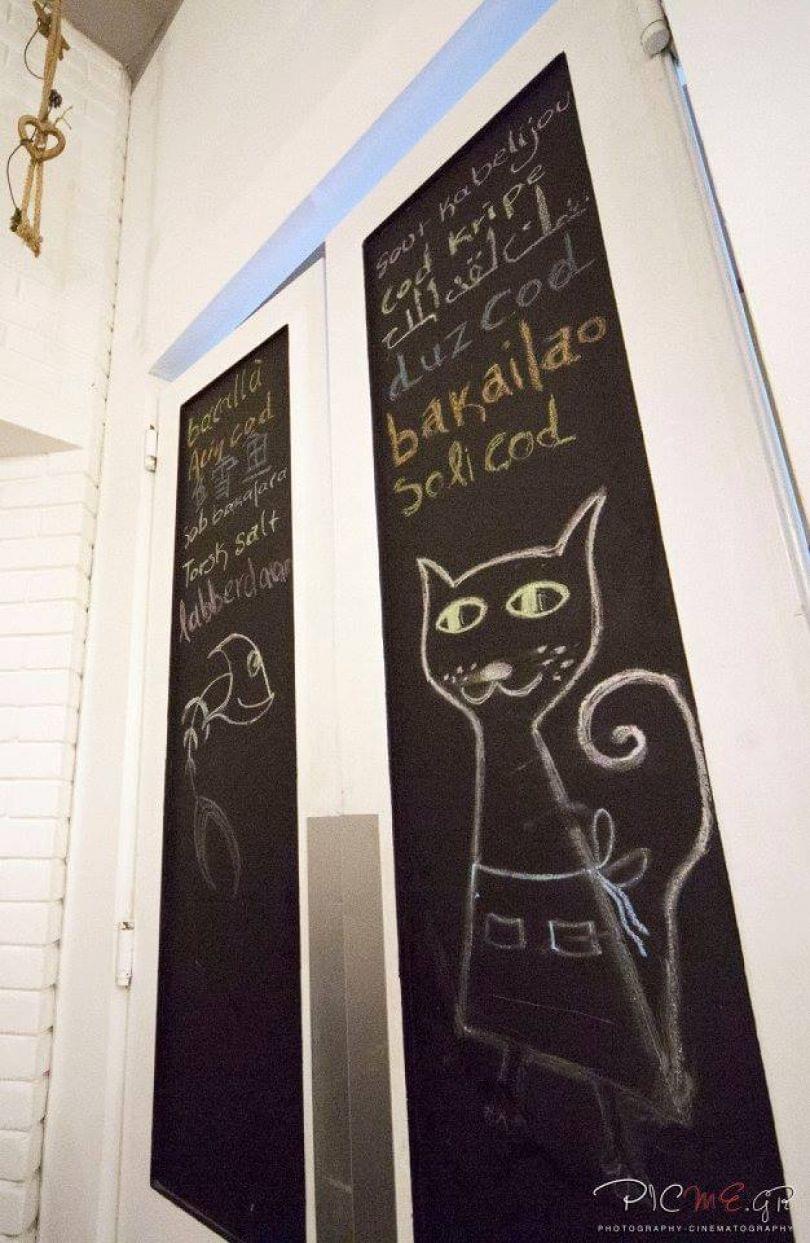 bacallà
cod
鱈魚
Torsk salt
labberdaan
sout kabelijou
cod kripe
duz cod
bakailao
soli cod
PICME.GR
PHOTOGRAPHY-CINEMATOGRAPHY